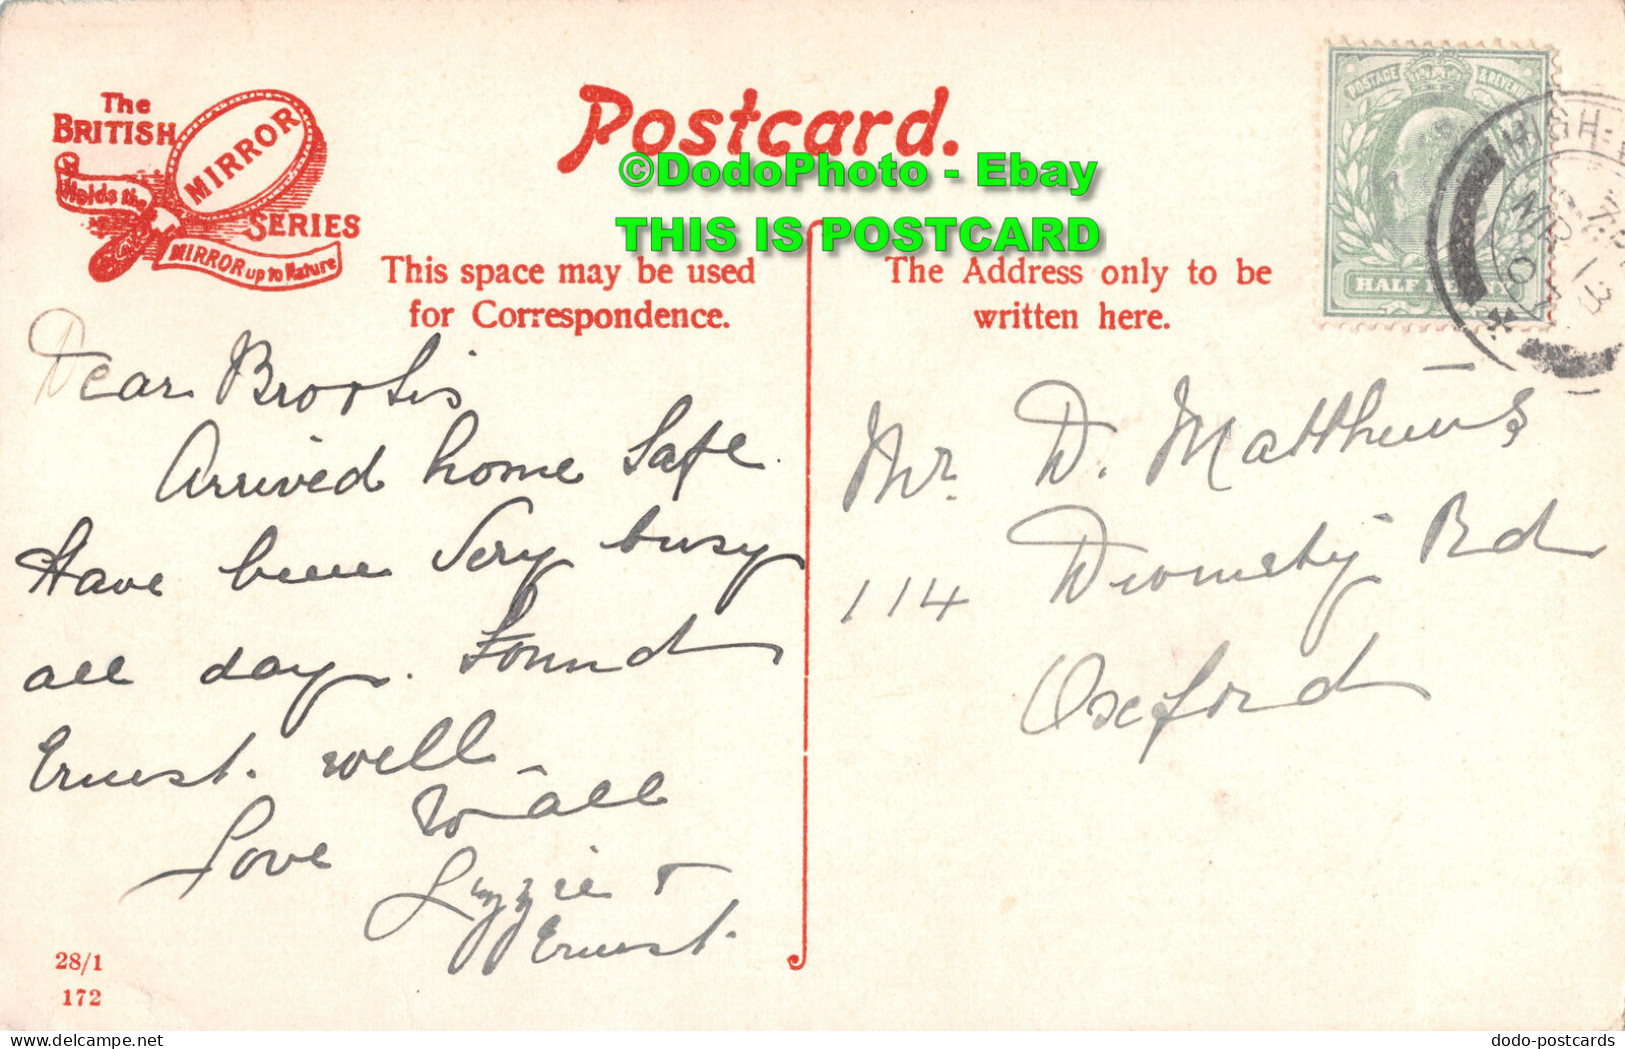 The
BRITISH
MIRROR
SERIES
Holds the
MIRROR up to Nature
Postcard.
©DodoPhoto - Ebay
THIS IS POSTCARD
This space may be used
for Correspondence.
The Address only to be
written here.
POSTAGE & REVENUE
HALF PENNY
HIGH
MR 13
Dear
Arrived home Safe.
Have been Very busy
all day. Found
Ernest. well
Love to all
Lizzie &
Ernest.
28/1
172
Mr. D. Matthews
114 Rd
Oxford
delcampe.net
dodo-postcards